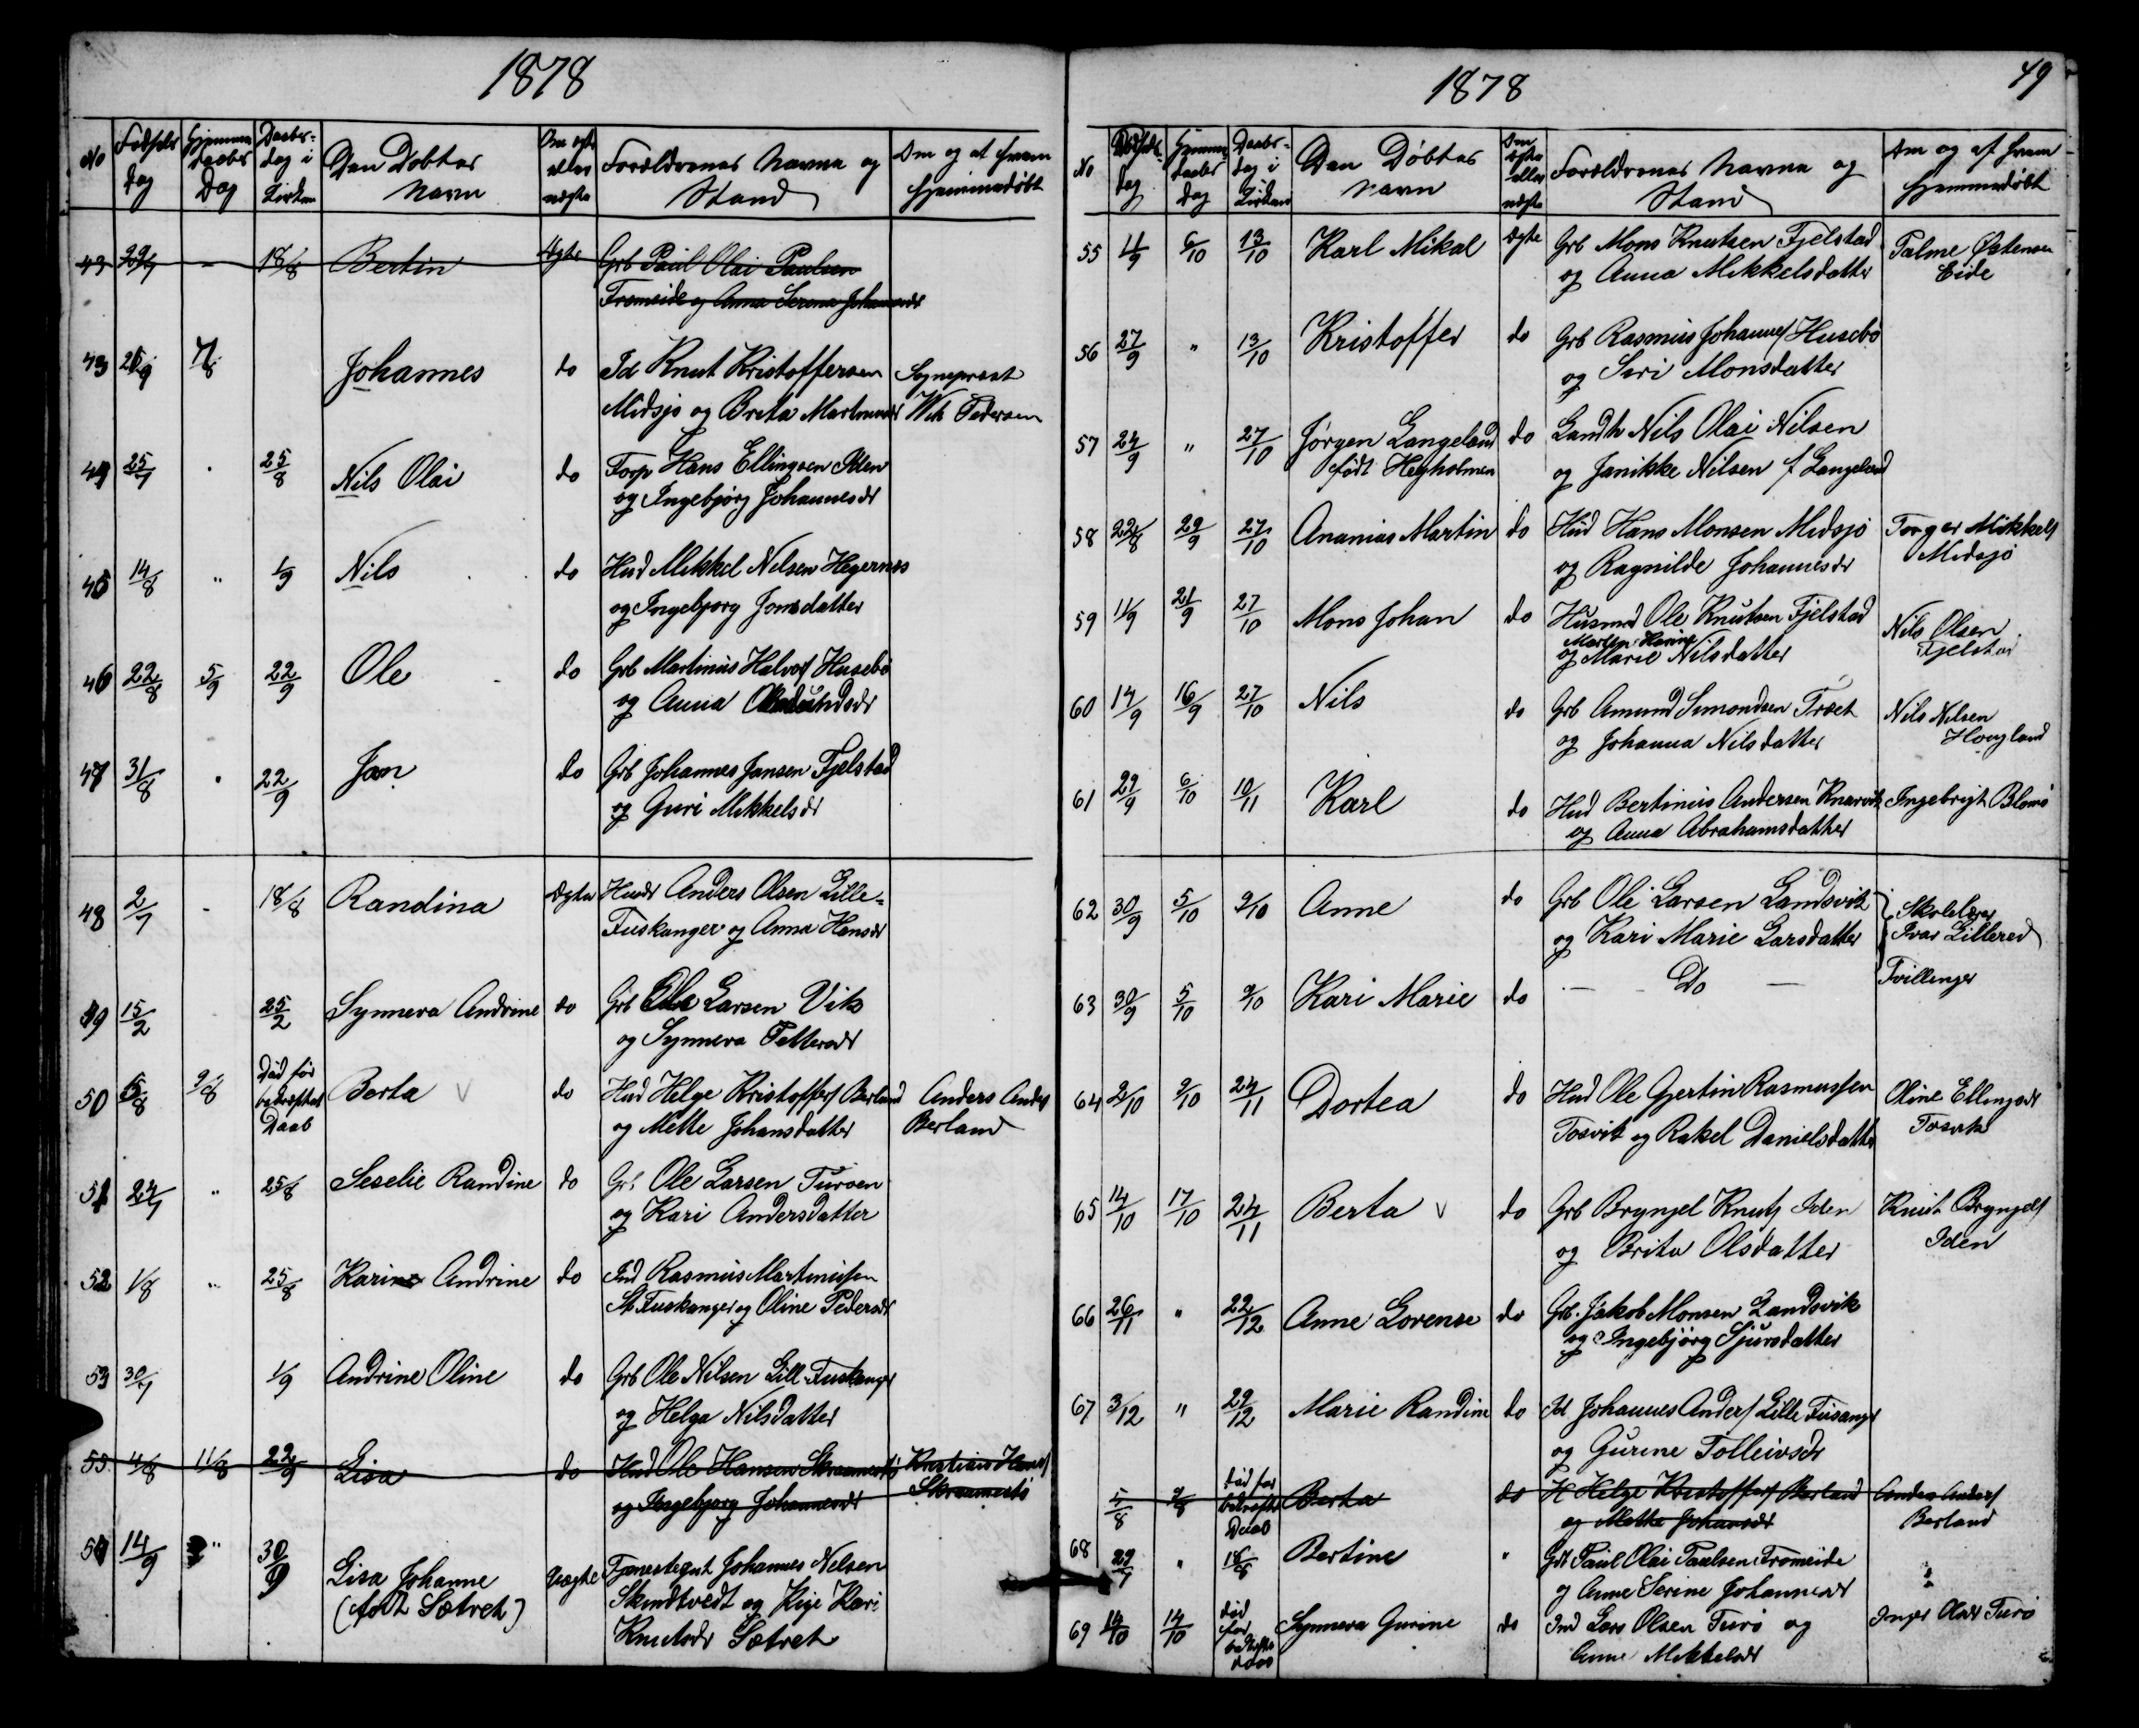 1878
No Fødsels Dag Hjemme daabs Dag Daabs-dag i Kirken Den Døbtes Navn Om ægte eller uægte Forældrenes Navne og Stand Om og af hvem hjemmedøbt
43 29/7 - 18/8 Bertin Ægte Grb Paul Olai Paulsen
Fromeide og Anna Serena Johannesdr
43 7/8 Johannes do Id Knut Kristoffersen Sognepræst
Midsjø og Brita Martinusdr Wth Pedersen
44 25/7 25/8 Nils Olai do Forp Hans Ellingsen Iden
og Ingebjørg Johannesdr
45 14/8 " 1/9 Nils do Hud Mikkel Nilsen Hegernes
og Ingebjørg Jonsdatter
46 22/8 5/9 22/9 Ole do Grb Martinus Halvors Husebø
og Anna
47 31/8 " 22/9 Jan do Grb Johannes Jansen Fjelstad
og Guri Mikkelsdr
48 2/7 - 18/8 Randina Ægte Anders Olsen Lille-
Fuskanger og Anna Hansdr
49 15/2 25/2 Synneva Andrine do Grb Ole Larsen Vik
og Synneva Pettersdr
50 5/8 9/8 Død før bekræftet Daab Berta do Hud Helge Kristoffers Berland Anders Anders
og Mette Johansdatter Berland
51 24/7 " 25/8 Seselie Randine do Grb Ole Larsen Turøen
og Kari Andersdatter
52 1/8 " 25/8 Karine Andrine do Ind Rasmus Martinussen
St Fuskanger og Oline Pedersdr
53 30/7 1/9 Andrine Oline do Grb Ole Nilsen Lill-Fuskanger
og Helga Nilsdatter
55 4/8 11/8 22/9 Lisa do Hud Ole Hansen Skraamestø Kristian Hans
og Ingebjørg Johannesdr Skraamestø
54 14/9 " 30/9 Lisa Johanne uægte Tjenestegut Johannes Nilsen
(født Sætret) og Pige Kari
Knutsdr Sætret
1878 49
No Fødsels Dag Hjemme daabs Dag Daabs-dag i Kirken Den Døbtes Navn Om Ægte eller uægte Forældrenes Navne og Stand Om og af hvem hjemmedøbt
55 11/9 6/10 13/10 Karl Mikal Ægte Grb Mons Knutsen Fjelstad Palme Østensen
og Anna Mikkelsdatter Eide
56 27/9 " 13/10 Kristoffer do Grb Rasmus Johannes Husebø
og Siri Monsdatter
57 24/9 " 27/10 Jørgen Langeland do Landh Nils Olai Nilsen
født Hegholmen og Janikke Nilsen f Langeland
58 22/8 29/9 27/10 Ananias Martin do Hud Hans Monsen Midsjø Torger Mikkels
og Ragnilde Johannesdr Midsjø
59 11/9 21/9 27/10 Mons Johan do Husmd Ole Knutsen Fjelstad Nils Olsen
og Marie Nilsdatter Fjelstad
60 14/9 16/9 27/10 Nils do Grb Amund Simondsen Træet Nils Nilsen
og Johanna Nilsdatter Hougland
61 29/9 6/10 10/11 Karl do Hud Bertinius Andersen Knarvik Ingebrigt Blomø
og Anna Abrahamsdatter
62 30/9 5/10 9/10 Anne do Grb Ole Larsen Landsvik Skolelærer
og Kari Marie Larsdatter Ivar Lillered
63 30/9 5/10 9/10 Kari Marie do — Do — Tvillinger
64 2/10 9/10 24/11 Dortea do Hud Ole Gjertin Rasmussen Oline Ellingsdr
Tosvik og Rakel Danielsdatter Tosvik
65 14/10 17/10 24/11 Berta do Grb Brynjel Knuts Iden Knut Brynjels
og Brita Olsdatter Iden
66 26/11 " 22/12 Anne Lorense do Grb. Jakob Monsen Landsvik
og Ingebjörg Sjursdatter
67 3/12 " 29/12 Marie Randine do Id Johannes Anders Lille Fusanger
og Gurine Tolleivsdr
5/8 9/8 død før bekræftet Daab Berta do H Helge Kristoffers Berland Anders Anders
og Mette Johansdr Berland
68 29/7 " 18/8 Bertine " Grb Paul Olai Paulsen Fromeide
og Anne Serine Johannesdr
69 14/10 14/10 død før bekræftet Daab Synneva Gurine do Ind Lars Olsen Turø og Inger Olsdr Turø
Anne Mikkelsdr